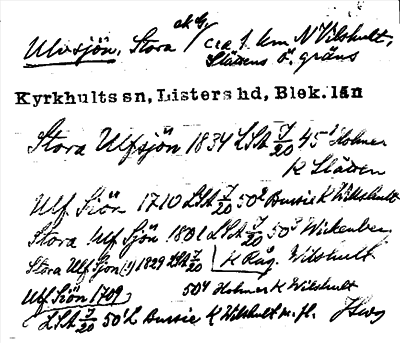 Ulvsjön, Stora ek G. / c:a 1 km N Vilshult,
Slätens ö. gräns
Kyrkhults sn, Listers hd, Blek. län
Stora Ulfsjön 1834 LSA 7/20 45² Holmer
K Släten
Ulf Siön 1710 LSA 7/20 50² Bussie K Vilshult
Stora Ulf Sjön 1801 LSA 7/20 50³ Wickenberg
Stora Ulf Sjön 1829 LSA 7/20 K Råg. Vilshult
Ulf Siön 1709 50⁴ Holmer K Vilshult
LSA 7/20 50¹ Bussie K Vilshult m. fl.